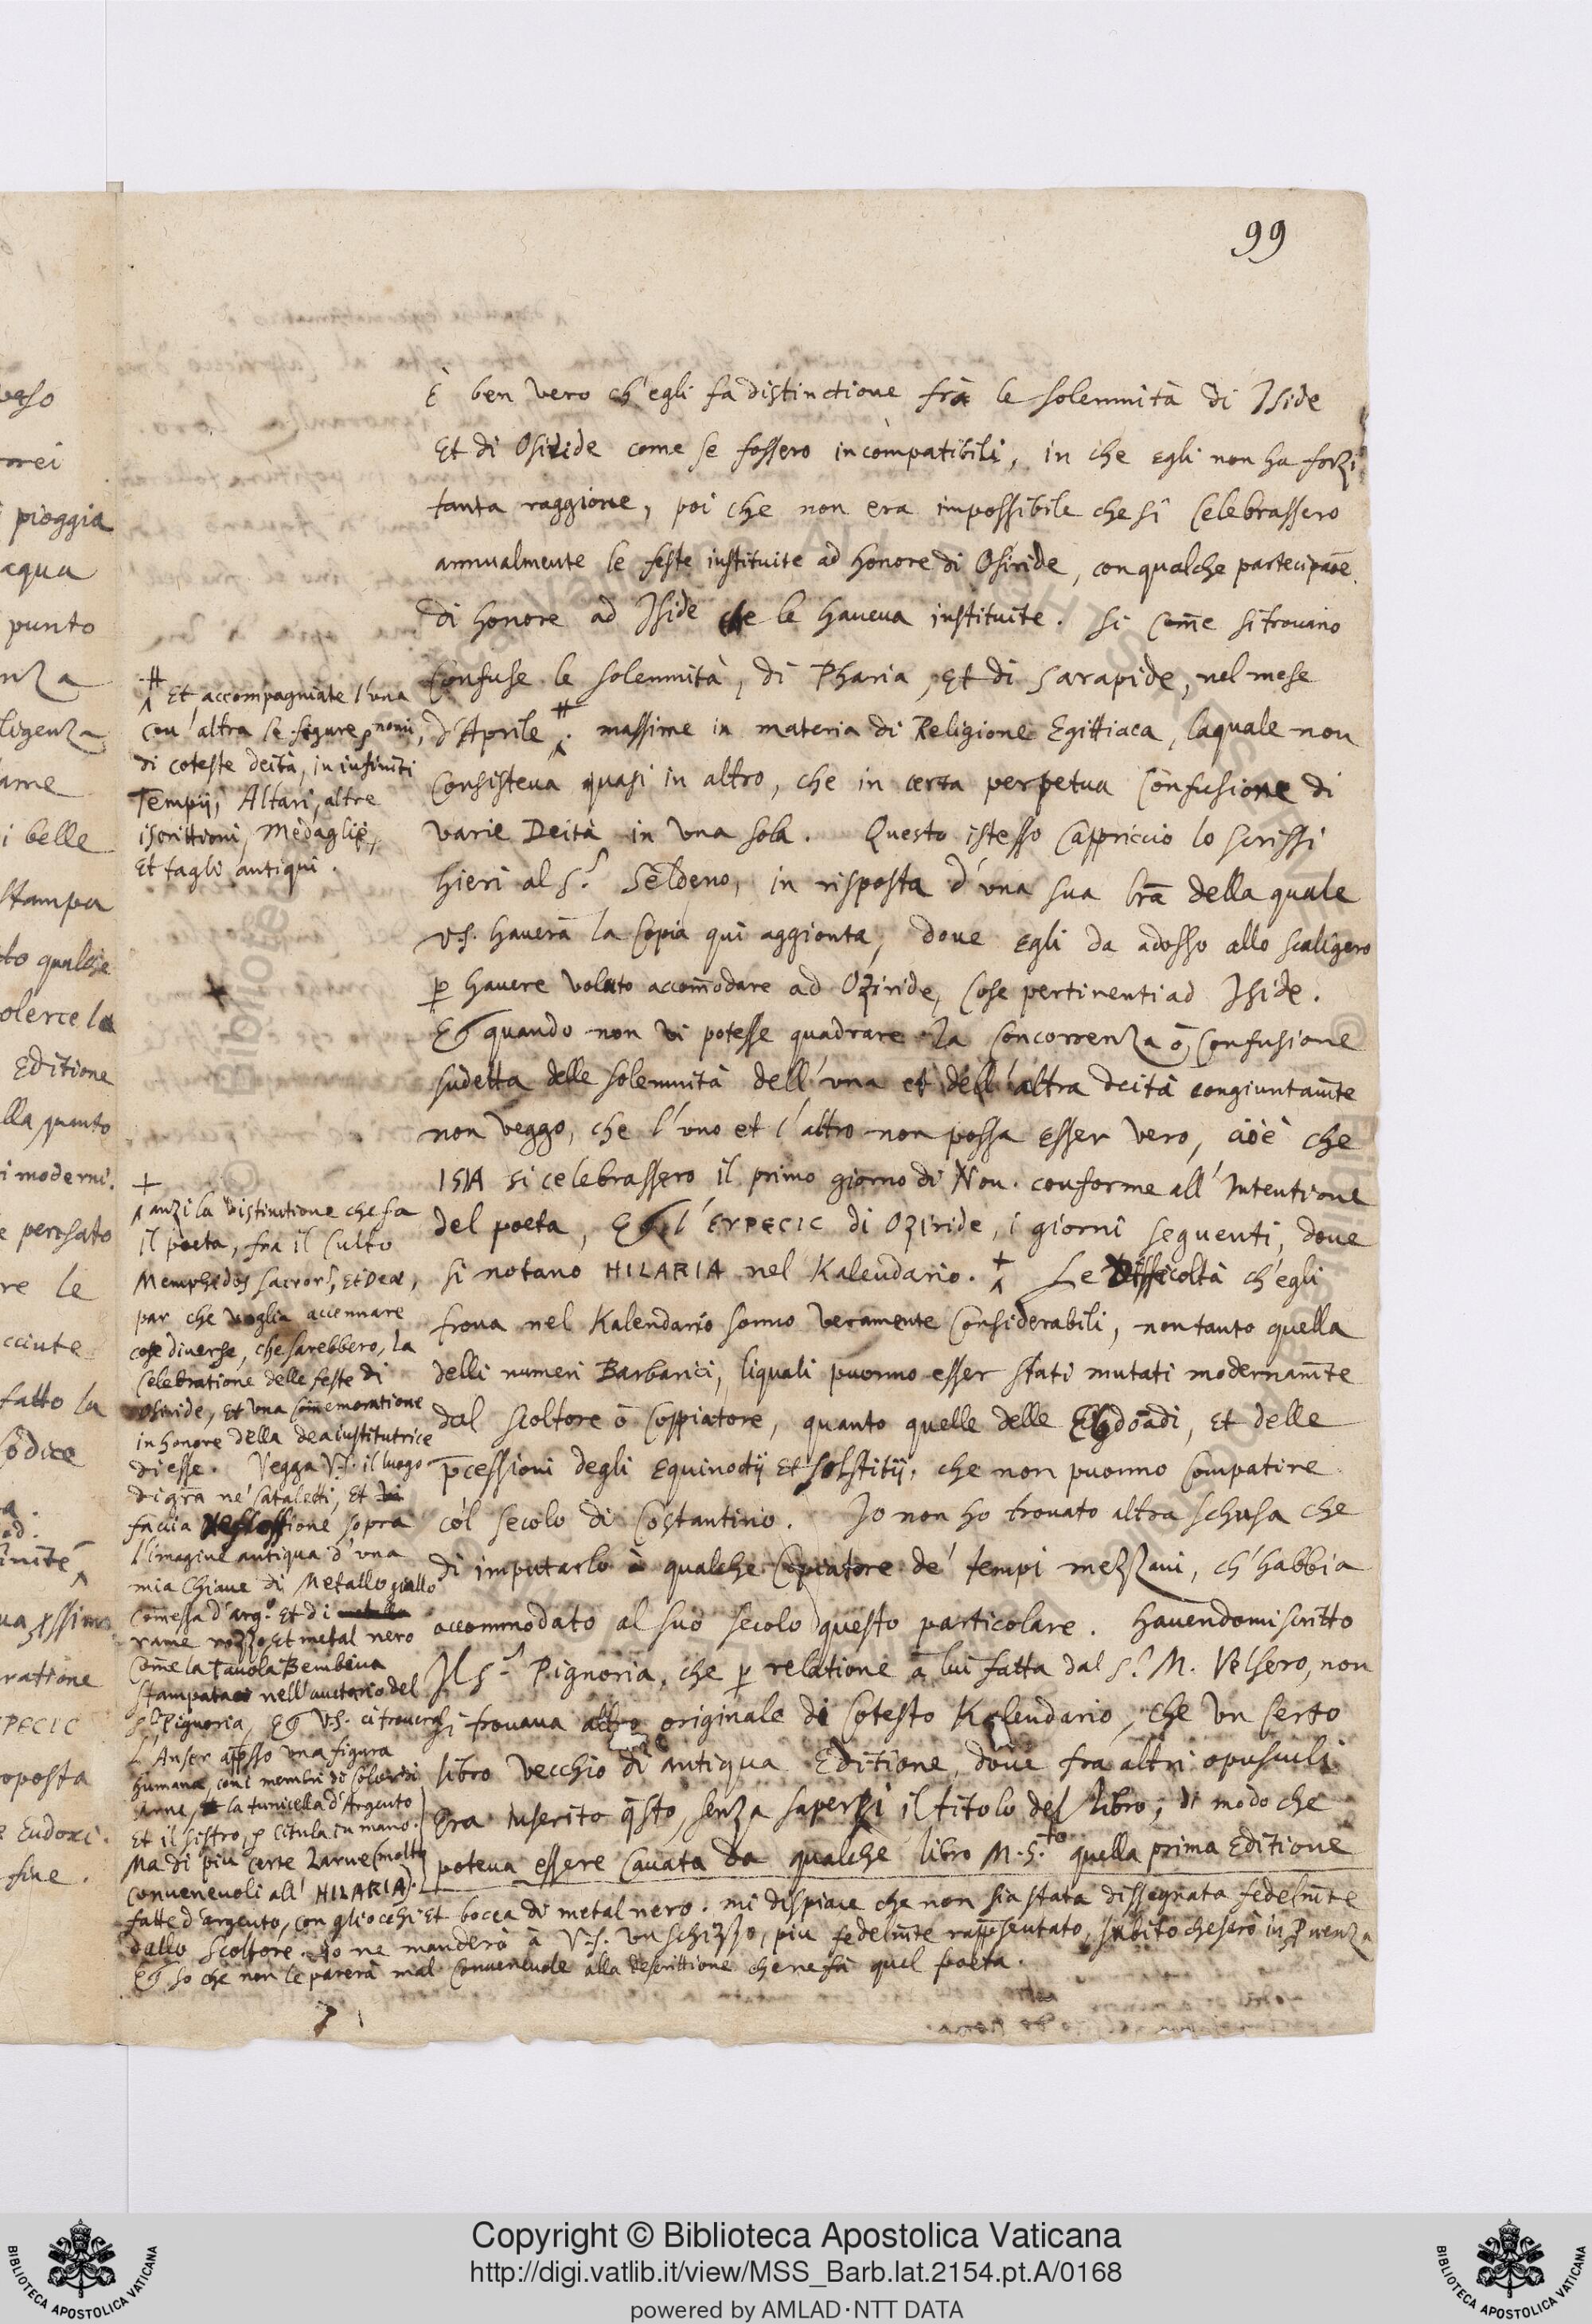 99
È ben vero ch'egli fa distinctione frà le solennità di Iside
Et di Osiride come se fossero incompatibili, in che egli non ha forzi
tanta raggione, poi che non era impossibile che si celebrassero
annualmente le feste instituite ad honore di Osiride, con qualche partecipaōe
di honore ad Iside che le haveva instituite. Si com̄e si trovano
Confuse le solennità, di Pharia, Et di Sarapide, nel mese
d'Aprile ⌗. massime in materia di Religione Egittiaca, laquale non
Consisteva quasi in altro, che in certa perpetua Confusione di
varie Deità in una sola. Questo istesso Cappriccio lo scrissi
hieri al S.r Seldeno, in risposta d'una sua lr̄a della quale
V.S. haverà la Copia qui aggionta, dove egli da adosso allo Scaligero
p havere voluto accom̄odare ad Oziride, cose pertinenti ad Iside.
Et quando non vi potesse quadrare la Concorrenza ò Confusione
sudetta delle solennità dell'una et dell'altra deità congiuntam̄te
non veggo, che l'uno et l'altro non possa esser vero, cioè che
ISIA si celebrassero il primo giorno di Nov. conforme all'Intentione
del poeta, Et l'ΕΥΡΕCΙC di Oziride, i giorni seguenti, dove
si notano HILARIA nel Kalendario. + Le Difficoltà ch'egli
trova nel Kalendario sonno veramente Considerabili, non tanto quella
delli numeri Barbarici, liquali puonno esser stati mutati modernam̄te
dal scoltore ò Coppiatore, quanto quelle delle Ebdoadi, Et delle
p̄cessioni degli Equinoctij Et solstitij, che non puonno Compatire
còl secolo di Costantino. Io non ho trovato altra schusa che
di imputarlo à qualche Copiatore de' tempi mezzani, ch'habbia
accommodato al suo secolo questo particolare. Havendomi scritto
Il S.r Pignoria, che p relatione à lui fatta dal S.r M. Velsero, non
si trovava altro originale di Cotesto Kalendario, che un Certo
libro vecchio di antiqua Editione, dove fra altri opusculi
Era inserito q̄sto, senza sapersi il titolo del libro, di modo che
poteva essere Cavata da qualche libro M.S.to quella prima Editione
⌗ Et accompagniate l'una
con l'altra le figure, nomi,
di coteste deità, in infiniti
Tempij, Altari, altre
iscrittioni, Medaglie,
Et tagli antiqui.
+
+ anzi la Distinctione che fa
il poeta, fra il Culto
Memphedos sacror', Et Deæ,
par che voglia accennare
cose diverse, che sarebbero, la
Celebratione delle feste di
Osiride, Et una Com̄emoratione
in honore della dea institutrice
di esse. Vegga V.S. il luogo
di gr̄a ne' Cataletti, Et
faccia Reflessione sopra
l'imagine antiqua d'una
mia Chiave di Metallo giallo
Com̄essa d'arg.o Et di
rame rozzo Et metal nero
Come la Tavola Bembina
stampata nell'auctario del
S.r Pignoria, Et V.S. ci trovera
L'Anser appsso una figura
humana, con i membri di Color di
Carne, la tunicella d'Argento
Et il sistro, ò Citula in mano.
Ma di più certe Larve (molto
convenevoli all'HILARIA)
fatte d'argento, con gli occhi Et bocca di metal nero. mi dispiace che non sia stata dissegnata fedelm̄te
dallo Scoltore. Io ne manderò à V.S. un schizzo, più fedelm̄te rapp̄sentato, subito che serò in Pvenza
Et so che non le parerà mal Convenevole alla descrittione che ne fà quel poeta.
verso
pioggia
punto
ligenza
i belle
stampa
qualche
Editione
lla quanto
i moderni.
re le
fatto la
ratione
oposta
Eudoxi.
fine.
Copyright © Biblioteca Apostolica Vaticana
http://digi.vatlib.it/view/MSS_Barb.lat.2154.pt.A/0168
powered by AMLAD·NTT DATA
BIBLIOTECA APOSTOLICA VATICANA
BIBLIOTECA APOSTOLICA VATICANA